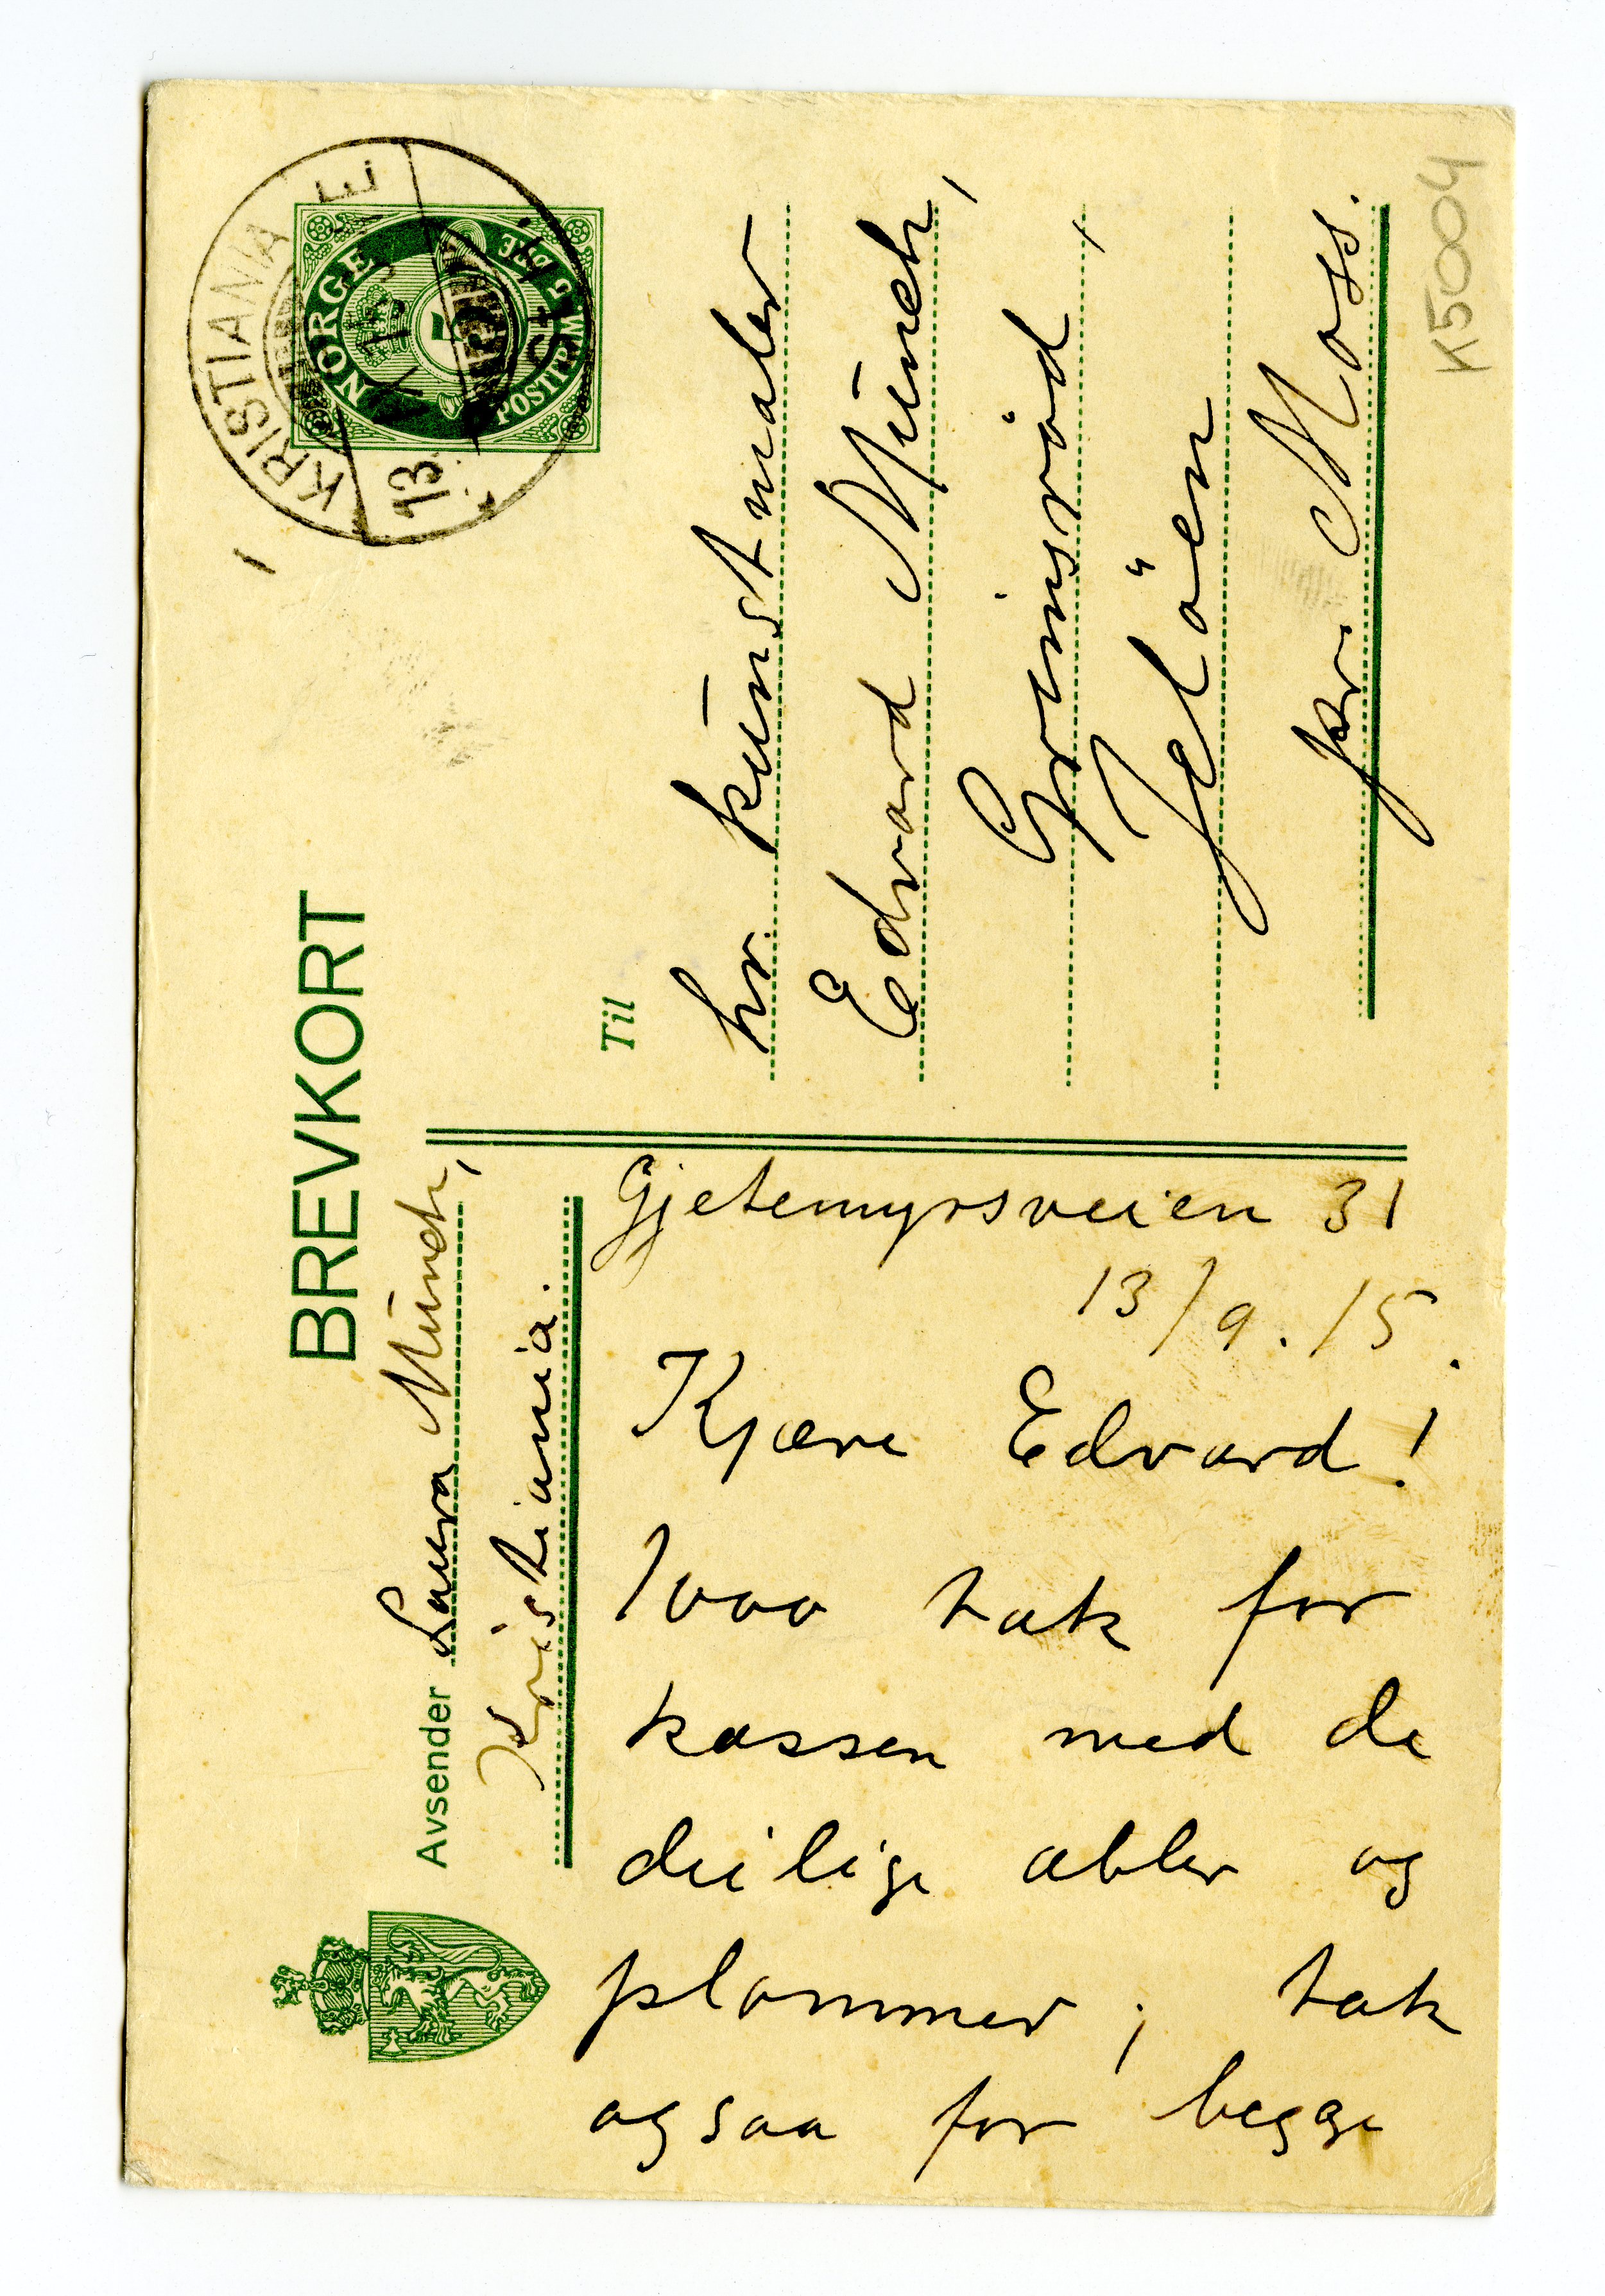 BREVKORT
Avsender Laura Munch,
Kristiania.
KRISTIANIA
13. IX 15
NORGE
POSTFRIM. 5 ØRE
5
Til
hr. kunstmaler
Edvard Munch,
Grimsröd,
Jelöen
pr. Moss.
Gjetemyrsveien 31
13/9. 15.
Kjære Edvard!
1000 tak for
kassen med de
deilige æbler og
plommer; tak
ogsaa for begge
K5004